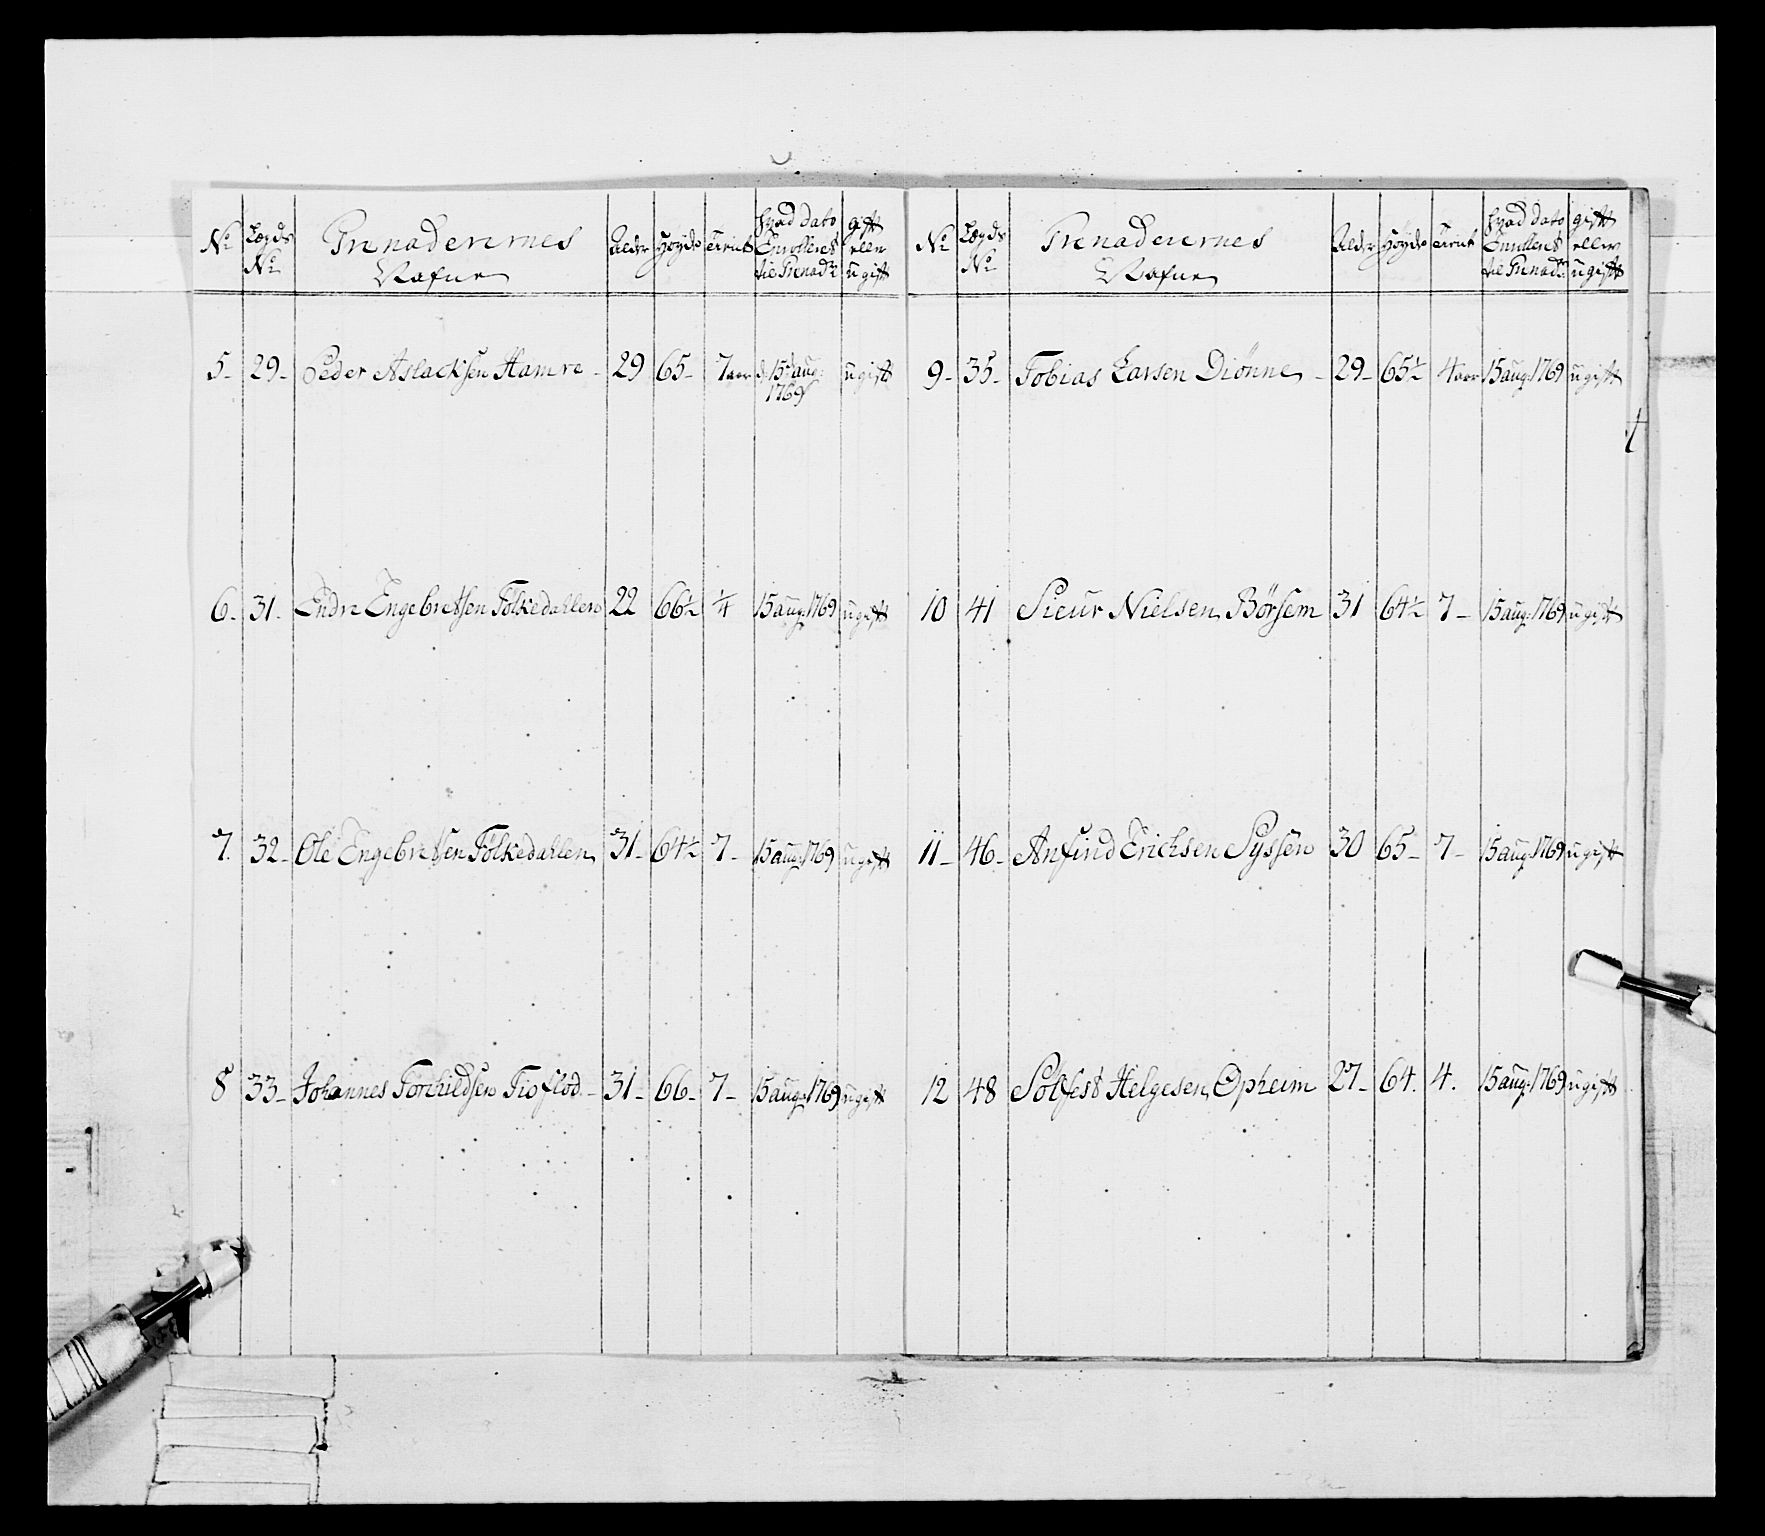 No | Lægds No | Grenaderernes Nafne | Alder | Høyde | tient | hvad dato Enrolleret til Grenadr | gift eller ugift
5- | 29- | Peder Aslacksen Hamre - | 29 | 65- | 7 aar | d: 15 aug: 1769 | ugift
6- | 31- | Endre Engebretsen Folkedahlen | 22 | 66½ | ¼ | 15 aug: 1769 | ugift
7. | 32- | Ole Engebretsen Folkedahlen | 31- | 64½ | 7- | 15 aug: 1769 | ugift
8 | 33- | Johannes Torchildsen Tioflod - | 31- | 66- | 7- | 15 aug: 1769 | ugift
No | Lægds No | Grenaderernes Nafne | Alder | Høyde | tient | hvad dato Enrolleret til Grenadr: | gift eller ugift
9- | 35- | Tobias Larsen Diønne - | 29- | 65½ | 4 aar | 15 aug: 1769 | ugift
10 | 41 | Siur Nielsen Børsem | 31 | 64½ | 7- | 15 aug: 1769 | ugift
11- | 46- | Anfind Erichsen Syssen | 30 | 65- | 7- | 15 aug: 1769 | ugift
12 | 48 | Solfest Helgesen Opheim | 27- | 64. | 4. | 15 aug: 1769 | ugift